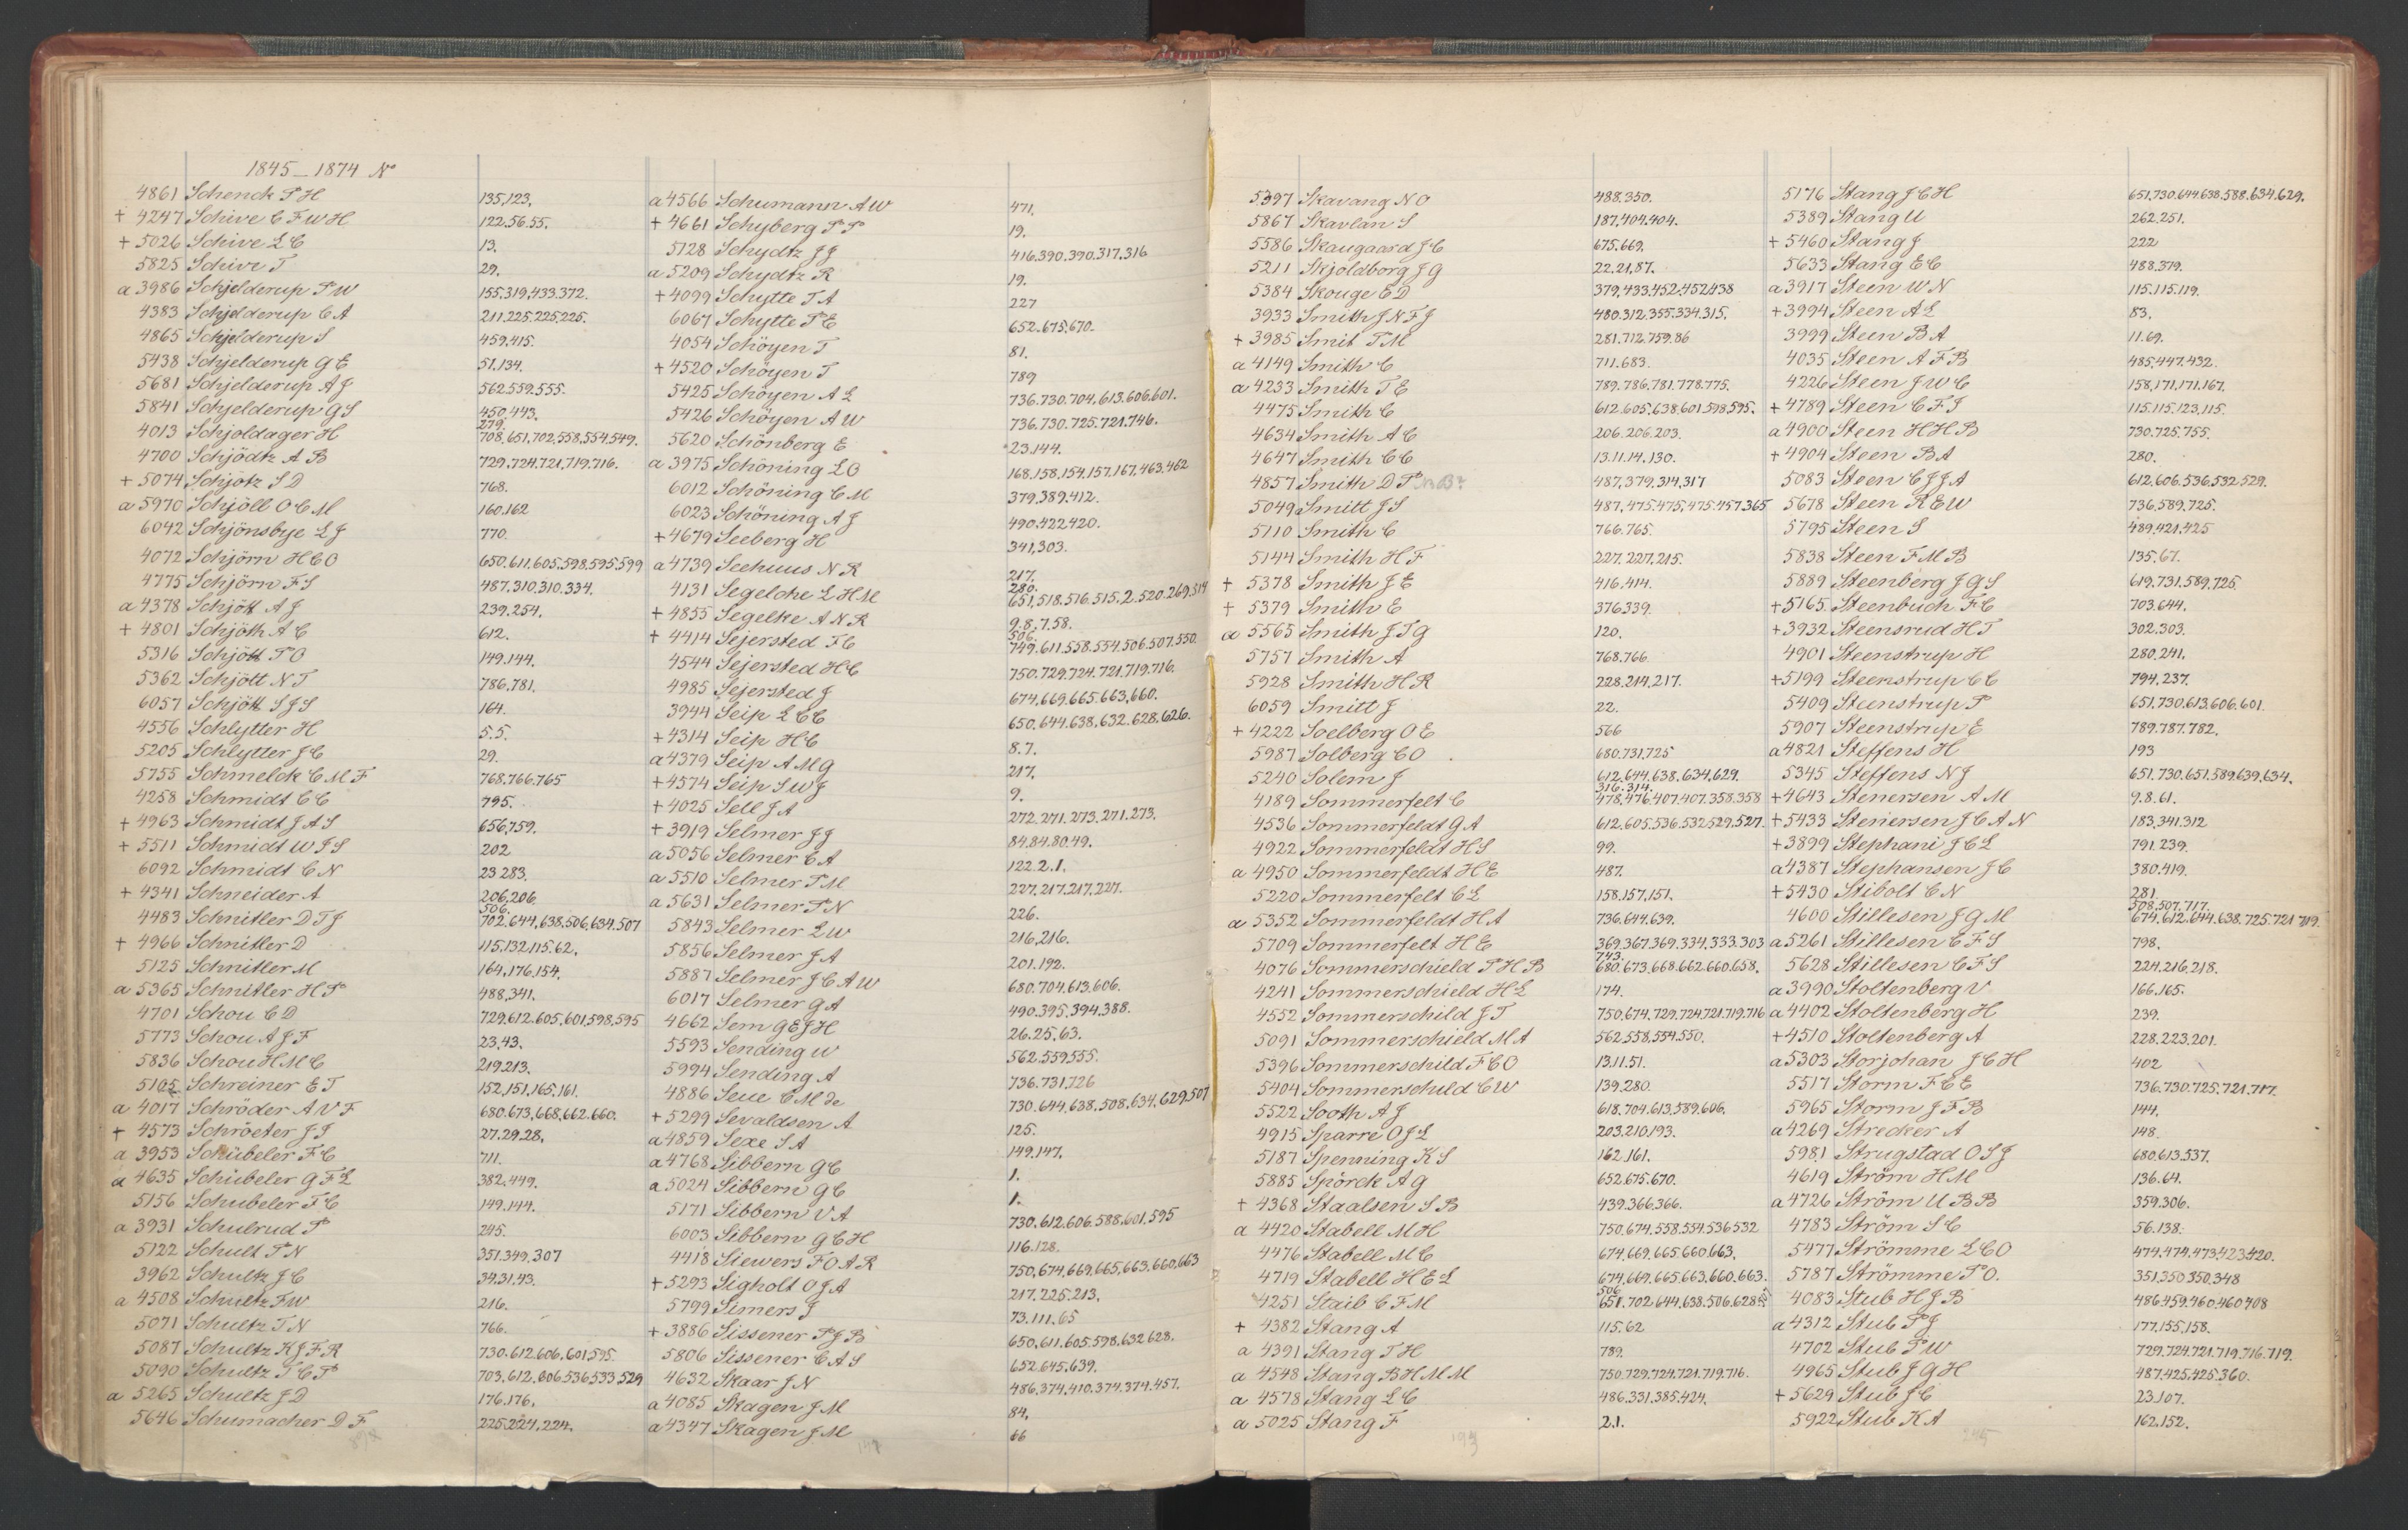 1845_1874 No
4861 Schenck P H 135,123,
+ 4247 Schive C F W H 122.56.55.
+ 5026 Schive L C 13.
5825 Schive T 29.
a 3986 Schjelderup P W 155.319.433.372.
4383 Schjelderup C A 211.225.225.225.
4865 Schjelderup S 459.415.
5438 Schjelderup G E 51.134.
5681 Schjelderup A J 562.559.555.
5841 Schjelderup G S 450.443.
279.
4013 Schjoldager H 708,651,702,558,554,549.
4700 Schjödtz A B 729.724.721.719.716.
+ 5074 Schjötz S D 768.
a 5970 Schjöll O C M 160.162
6042 Schjönsbye L J 770.
4072 Schjörn H C O 650.611.605.598.595.599
4775 Schjörn F S 487.310.310.334.
a 4378 Schjött A J 239.254.
+ 4801 Schjöth A C 612.
5316 Schjött P O 149.144.
5362 Schjött N T 786,781.
6057 Schjött S J S 164.
4556 Schlytter H 5.5.
5205 Schlytter J C 29.
5755 Schmelck C M F 768.766.765
4258 Schmidt C C 795.
+ 4963 Schmidt J A S 656,759.
+ 5511 Schmidt W J S 202
6092 Schmidt C N 23 283.
+ 4341 Schneider A 206,206.
506.
4483 Schnitler D T J 702.644,638,506,634.507
+ 4966 Schnitler D 115.132.115.62.
5125 Schnitler M 164,176,154.
a 5365 Schnitler H P 488,341.
4701 Schou C D 729,612.605,601,598,595
5773 Schou A J F 23,43.
5836 Schou H M C 219.213.
5105 Schreiner E T 152,151,165,161.
a 4017 Schröder A V F 680.673,668,662.660.
+ 4573 Schröeter J J 27.29.28.
a 3953 Schübeler F C 711.
a 4635 Schübeler G F L 382.449.
5156 Schubeler F C 149.144.
a 3931 Schulrud P 245.
5122 Schult P N 351.349.307
3962 Schultz J C 34.31.43.
a 4508 Schultz F W 216.
5071 Schultz T N 766.
5087 Schultz K J F R 730.612.606,601,595.
5090 Schultz T C P 703,612.606.536.533.529
a 5265 Schultz J D 176.176.
5646 Schumacher D F 225.224.224.
a 4566 Schumann A W 471.
+ 4661 Schyberg P P 19.
5128 Schydtz J J 416.390.390.317.316
a 5209 Schydtz R 19.
+ 4099 Schytte T A 227
6067 Schytte P E 652.675.670.
4054 Schöyen T 81.
+ 4520 Schöyen T 789
5425 Schöyen A L 736.730.704,613.606.601.
5426 Schöyen A W 736.730.725.721.746.
5620 Schönberg E 23.144.
a 3975 Schöning L O 168.158.154.157.167,463,462
6012 Schöning C M 379,389.412.
6023 Schöning A J 490.422.420.
+ 4679 Seeberg H 341,303.
a 4739 Seehuus N R 217.
280.
4131 Segelcke L H M 651,518.516.515.2.520.269.514
+ 4855 Segelke A N R 9.8.7.58.
506.
+ 4414 Sejersted F C 749.611.558.554.506.507.550.
4544 Sejersted H C 750.729.724.721.719.716.
4985 Sejersted J 674,669.665.663,660.
3944 Seip L C C 650,644.638,632.628.626.
+ 4314 Seip H C 8.7.
a 4379 Seip A M G 217.
+ 4574 Seip S W J 9.
+ 4025 Sell J A 272.271.273.271.273.
+ 3919 Selmer J J 84.84.80.49.
a 5056 Selmer C A 122.2.1.
a 5510 Selmer P M 227.217.217.227.
a 5631 Selmer P N 226.
5843 Selmer L W 216,216.
5856 Selmer J A 201.192.
5887 Selmer J C A W 680.704.613.606.
6017 Selmer G A 490.395.394.388.
4662 Sem G E J H 26.25.63.
5593 Sending W 562.559.555.
5994 Sending A 736.731.726
4886 Seue C M de 730.644,638.508,634,629.507
+ 5299 Sevaldsen A 125.
a 4859 Sexe S A 149.147.
a 4768 Sibbern G C 1.
a 5024 Sibbern G C 1.
5171 Sibbern V A 730.612.606.588.601.595
6003 Sibbern G C H 116.128.
4418 Siewers F O A R 750,674,669.665,663.660,663
+ 5293 Sigholt O J A 217.225.213.
5799 Simers J 73.111.65
+ 3886 Sissener P J B 650,611.605.598.632.628.
5806 Sissener C A S 652.645.639.
4632 Skaar J N 486,374.410.374.374.457.
a 4085 Skagen J M 84.
a 4347 Skagen J M 66
5397 Skavang N O 488.350.
5867 Skavlan S 187.404.404.
5586 Skaugaard J C 675.669.
5211 Skjoldborg J G 22.21.87.
5384 Skouge E D 379.433.452.452.438
3933 Smith J N F J 480.312.355.334.315.
+ 3985 Smit T M 281.712.759.86
a 4149 Smith C 711.683.
a 4233 Smith T E 789.786.781.778.775.
4475 Smith C 612.605.638.601.598.595.
4634 Smith A C 206.206.203.
4647 Smith C C 13.11.14.130.
4857 Smith D P 487.379.314.317
5049 Smitt J S 487.475.475.475.457.365
5110 Smith C 766.765.
5144 Smith H F 227.227.215.
+ 5378 Smith J E 416.414.
+ 5379 Smith E 376.339.
a 5565 Smith J T G 120.
5757 Smith A 768.766
5928 Smith H R 228.214.217.
6059 Smitt J 22.
+ 4222 Soelberg O E 566
5987 Solberg C O 680.731.725
5240 Solem J 612.644.638.634.629.
316.314.
4189 Sommerfelt C 478.476.407.407.358.358
4536 Sommerfeldt G A 612.605.536.532.529.527.
4922 Sommerfeldt H S 99.
a 4950 Sommerfeldt H E 487.
5220 Sommerfelt C L 158.157.151.
a 5352 Sommerfeldt H A 736.644.639.
5709 Sommerfelt H E 369.367.369.334.333.303
743.
4076 Sommerschield P H B 680.673.668.662.660.658.
4241 Sommerschield H L 174.
4552 Sommerschild J T 750,674.729.724.721.719.716
5091 Sommerschield M A 562.558.554.550.
5396 Sommerschild F C O 13.11.51.
5404 Sommerschild C W 139.280.
5522 Sooth A J 618.704.613.589.606.
4915 Sparre O J L 203.210.193.
5187 Spenning K S 162.161.
5885 Spörck A G 652.675.670.
+ 4368 Staalsen S B 439.366.366.
a 4420 Stabell M H 750.674.558.554.536.532
4476 Stabell M C 674.669.665.660.663.
4719 Stabell H E L 674.669.665.663.660.663.
506
4251 Staib C F M 651.702.644.638.506.628
+ 4382 Stang A 115.62
a 4391 Stang T H 789.
a 4548 Stang B H M M 750.729.724.721.719.716.
a 4578 Stang L C 486.331.385.424.
a 5025 Stang F 2.1.
5176 Stang J C H 651,730.644.638.588.634.629.
5389 Stang U 262.251.
+ 5460 Stang J 222
5633 Stang E C 488.379.
a 3917 Steen W N 115.115.119.
+ 3994 Steen A L 83.
3999 Steen B A 11.69.
4035 Steen A F B 485.447.432.
4226 Steen J W C 158,171,171.167.
+ 4789 Steen C F J 115.115.123.115.
a 4900 Steen H H B 730.725.755.
+ 4904 Steen B A 280.
5083 Steen C J J A 612.606.536.532.529.
5678 Steen R E W 736.589.725.
5795 Steen S 489.421.425
5838 Steen F M B 135.67.
5889 Steenberg J G S 619.731.589.725
+ 5165 Steenbuch F C 703.644.
+ 3932 Steensrud H T 302.303.
4901 Steenstrup H 280.241.
+ 5199 Steenstrup C C 794.237.
5409 Steenstrup P 651.730.613.606.601.
5907 Steenstrup E 789.787.782.
a 4821 Steffens H 193
5345 Steffens N J 651.730.651.589.639.634.
+ 4643 Stenersen A M 9.8.61.
+ 5433 Stenersen J C A N 183.341.312
+ 3899 Stephani J C L 791.239.
a 4387 Stephansen J C 380.419.
+ 5430 Stibolt C N 281
508.507.717.
4600 Stillesen J G M 674.612.644.638.725.721.719.
a 5261 Stillesen E F S 798.
5628 Stillesen C F S 224.216.218.
a 3990 Stoltenberg V 166.165.
a 4402 Stoltenberg H 239.
+ 4510 Stoltenberg A 228.223.201.
a 5303 Storjohan J C H 402
5517 Storm F C E 736.730.725.721.717.
5965 Storm J F B 144.
a 4269 Strecker A 148.
5981 Strugstad O S J 680.613.537.
4619 Ström H M 136.64.
a 4726 Ström U B B 359.306.
4783 Ström S C 56.138.
5477 Strömme L C O 474.474.473.423.420.
5787 Strömme P O. 351.350.350.348
4083 Stub H J B 486.459.460.460.408
a 4312 Stub P J 177.155.158.
4702 Stub P W 729.724.721.719.716.719.
4965 Stub J G H 487.425.425.360.
+ 5629 Stub J C 23.107.
5922 Stub K A 162.152.